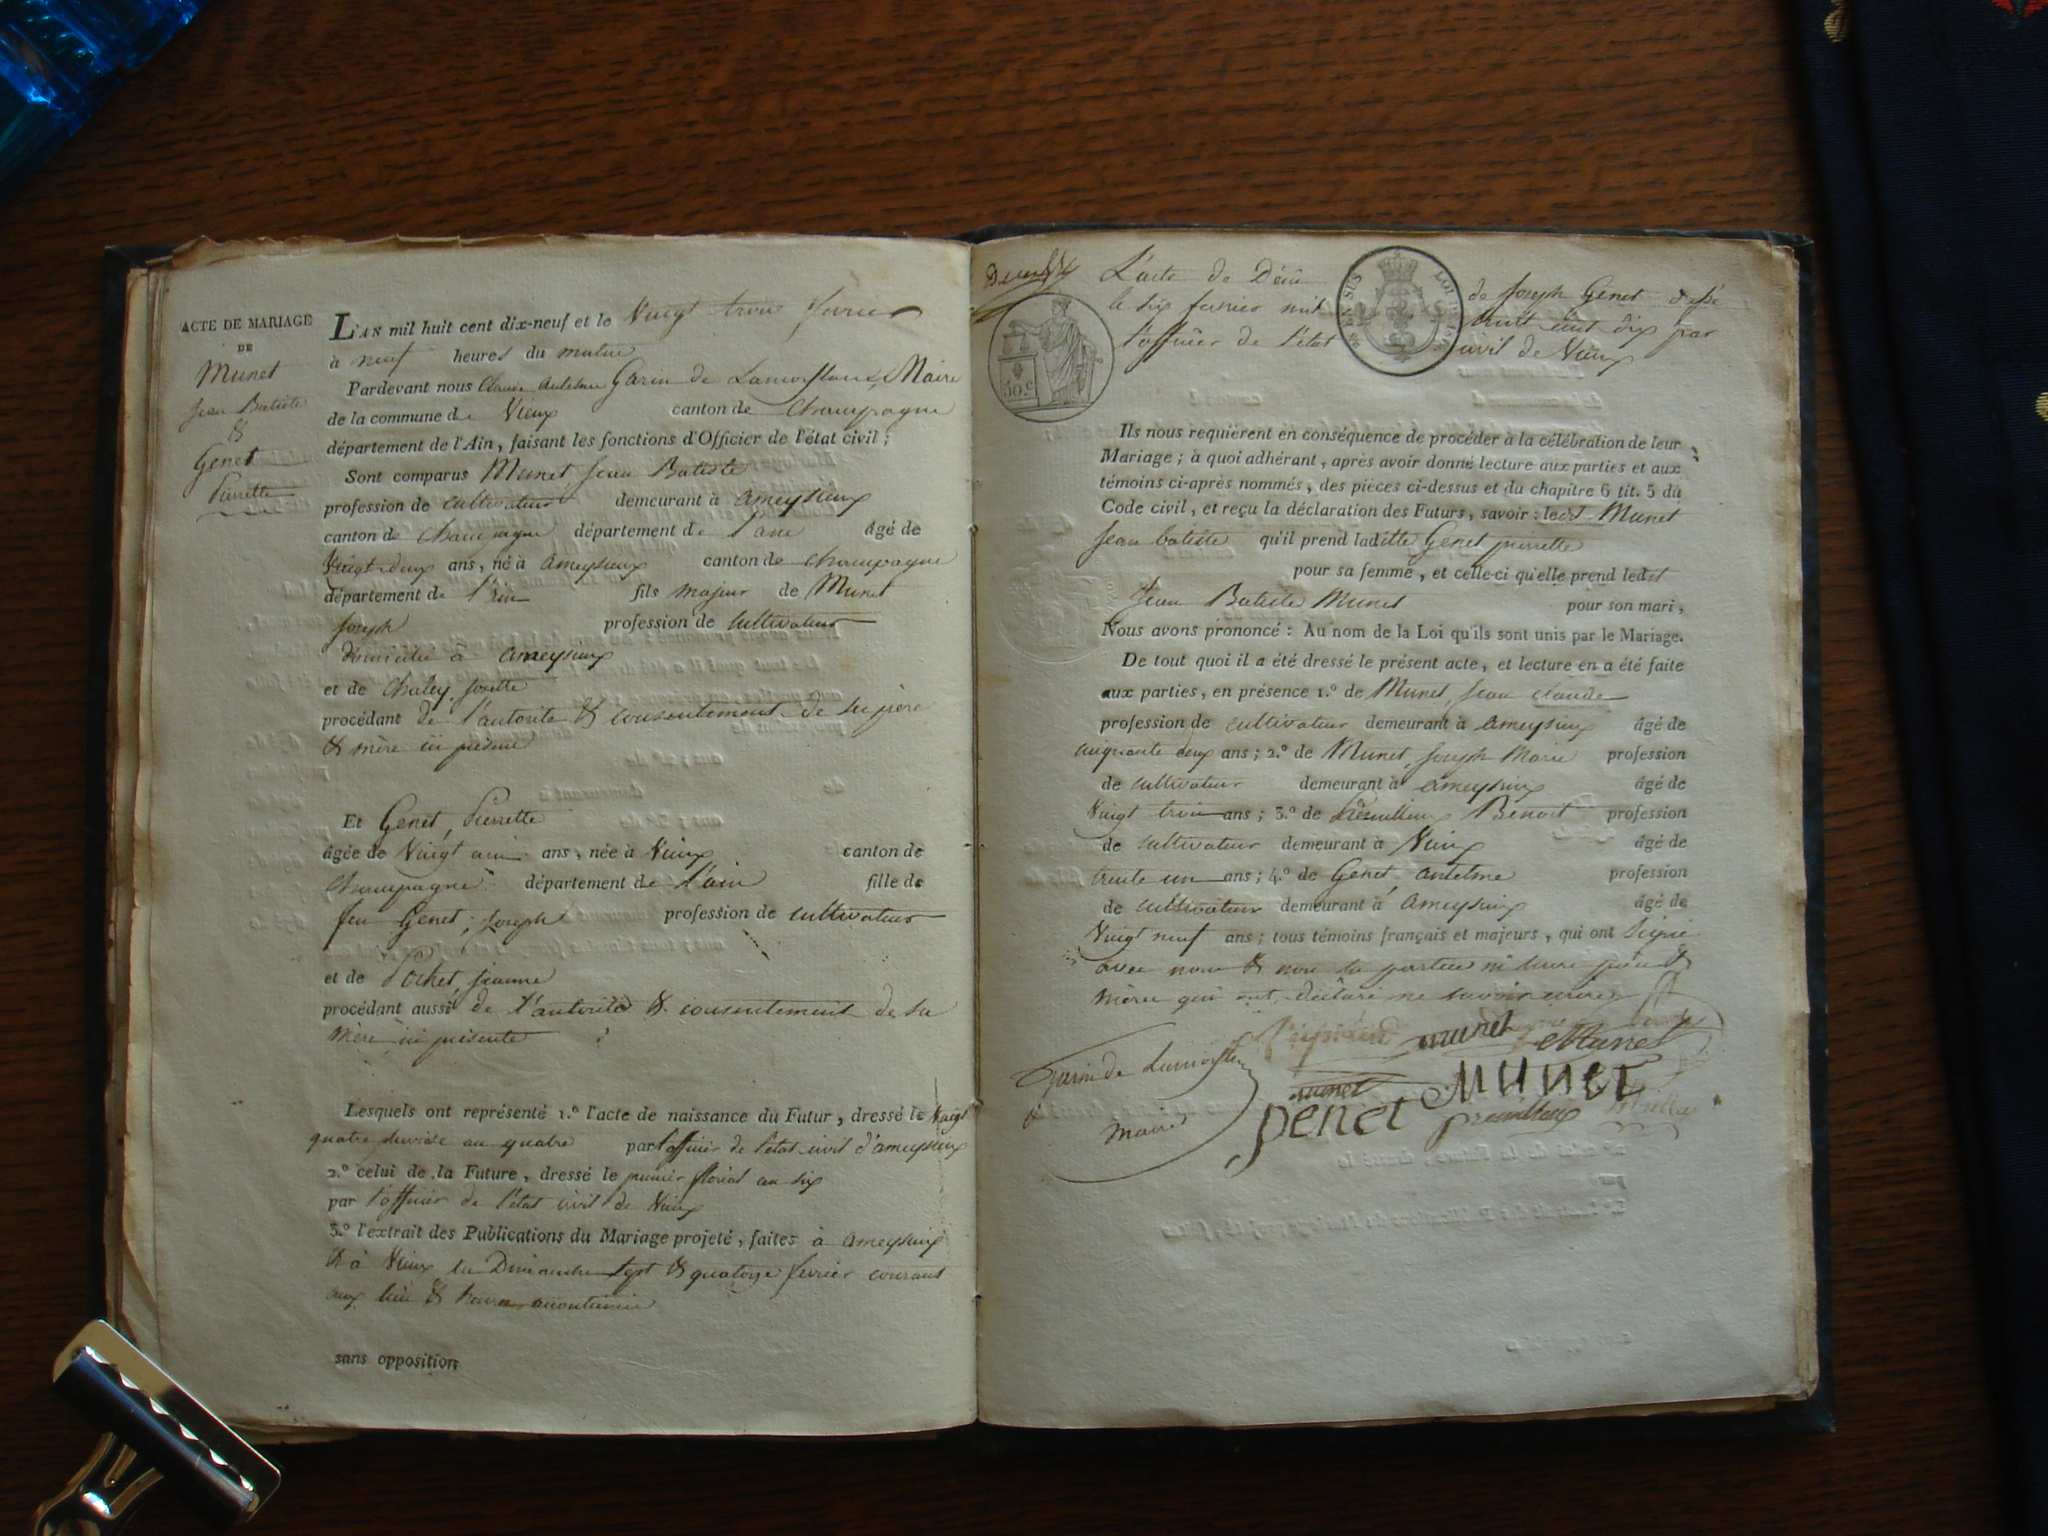 ACTE DE MARIAGE
DE
Munet
Jean Batiste
&
Genet
Pierrette
L'AN mil huit cent dix-neuf et le Vingt trois fevrier
à neuf heures du matin
Pardevant nous Claude Antelme Garin de Maire
de la commune de Vieux canton de Champagne
département de l'Ain, faisant les fonctions d'Officier de l'état civil;
Sont comparus Munet, Jean Batiste
profession de cultivateur demeurant à ameysieux
canton de Champagne département de l'ain âgé de
Vingt deux ans, né à Ameysieux canton de Champagne
département de l'ain fils majeur de Munet
Joseph profession de cultivateur
domicilié à ameysieux
et de Chaley, Josette
procédant de l'autorité & consentement de ses père
& mère ici présens
Et Genet, Pierrette
âgée de Vingt un ans, née à Vieux canton de
Champagne département de l'ain fille de
feu Genet, Joseph profession de cultivateur
et de Pochet, jeanne
procédant aussi de l'autorité & consentement de sa
mère ici présente
Lesquels ont représenté 1.º l'acte de naissance du Futur, dressé le Vingt
quatre an quatre par l'officier de l'état civil d'ameysieux
2.º celui de la Future, dressé le premier floréal an six
par l'officier de l'état civil de Vieux
3.º l'extrait des Publications du Mariage projeté, faites à ameysieux
& à Vieux les Dimanche sept & quatorze fevrier courant
aux lieu & heure accoutumée
sans opposition
L'acte de Décès de Joseph Genet
le six fevrier mil huit cent dix par
l'officier de l'état civil de Vieux
40.C
Ils nous requièrent en conséquence de procéder à la célébration de leur
Mariage; à quoi adhérant, après avoir donné lecture aux parties et aux
témoins ci-après nommés, des pièces ci-dessus et du chapitre 6 tit. 5 du
Code civil, et reçu la déclaration des Futurs, savoir: ledit Munet
Jean batiste qu'il prend ladite Genet pierrette
pour sa femme, et celle-ci qu'elle prend ledit
Jean Batiste Munet pour son mari,
Nous avons prononcé: Au nom de la Loi qu'ils sont unis par le Mariage.
De tout quoi il a été dressé le présent acte, et lecture en a été faite
aux parties, en présence 1.º de Munet, Jean claude
profession de cultivateur demeurant à ameysieux âgé de
cinquante deux ans; 2.º de Munet, Joseph Marie profession
de cultivateur demeurant à ameysieux âgé de
Vingt trois ans; 3.º de Benoit profession
de cultivateur demeurant à Vieux âgé de
trente un ans; 4.º de Genet, antelme profession
de cultivateur demeurant à Ameysieux âgé de
Vingt neuf ans; tous témoins français et majeurs, qui ont signé
avec nous & non la partie ni leurs père &
mères qui ont déclaré ne savoir écrire
munet Munet
Garin de
munet MUNET
maire genet